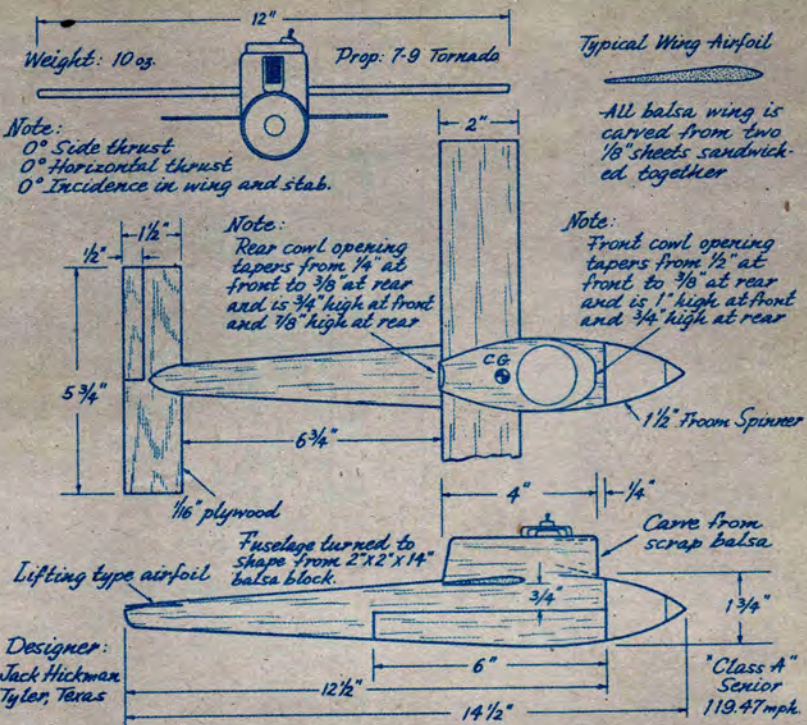 12"
Weight: 10 oz.
Prop: 7-9 Tornado
Typical Wing Airfoil
All balsa wing is
carved from two
1/8" sheets sandwich-
ed together
Note:
0° Side thrust
0° Horizontal thrust
0° Incidence in wing and stab.
2"
1 1/2"
1/2"
Note:
Rear cowl opening
tapers from 1/4" at
front to 3/8" at rear
and is 3/4" high at front
and 7/8" high at rear
Note:
Front cowl opening
tapers from 1/2" at
front to 3/8" at rear
and is 1" high at front
and 3/4" high at rear
CG
5 3/4"
6 3/4"
1 1/2" Froom Spinner
1/16" plywood
4"
1/4"
Fuselage turned to
shape from 2"x2"x14"
balsa block.
Carve from
scrap balsa
Lifting type airfoil
3/4"
1 3/4"
Designer:
Jack Hickman
Tyler, Texas
6"
12 1/2"
14 1/2"
"Class A"
Senior
119.47 mph.